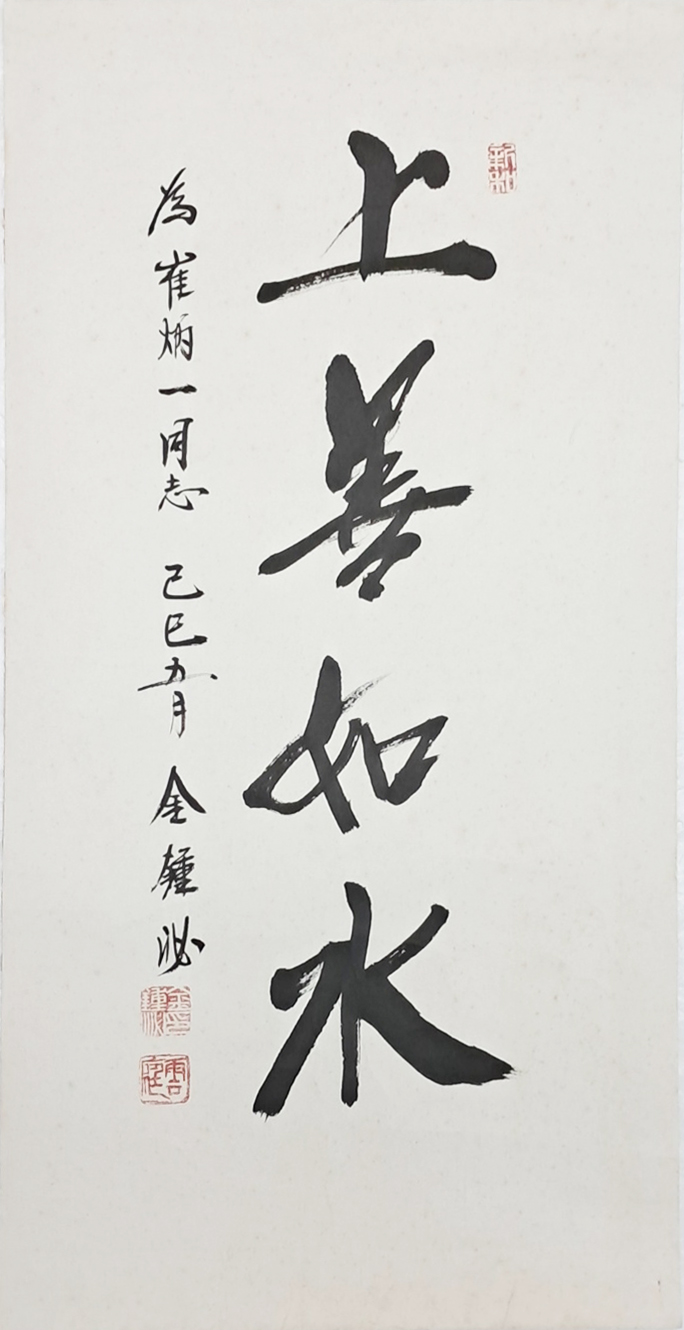 上善如水
為崔炳一同志 己巳九月 金鍾泌